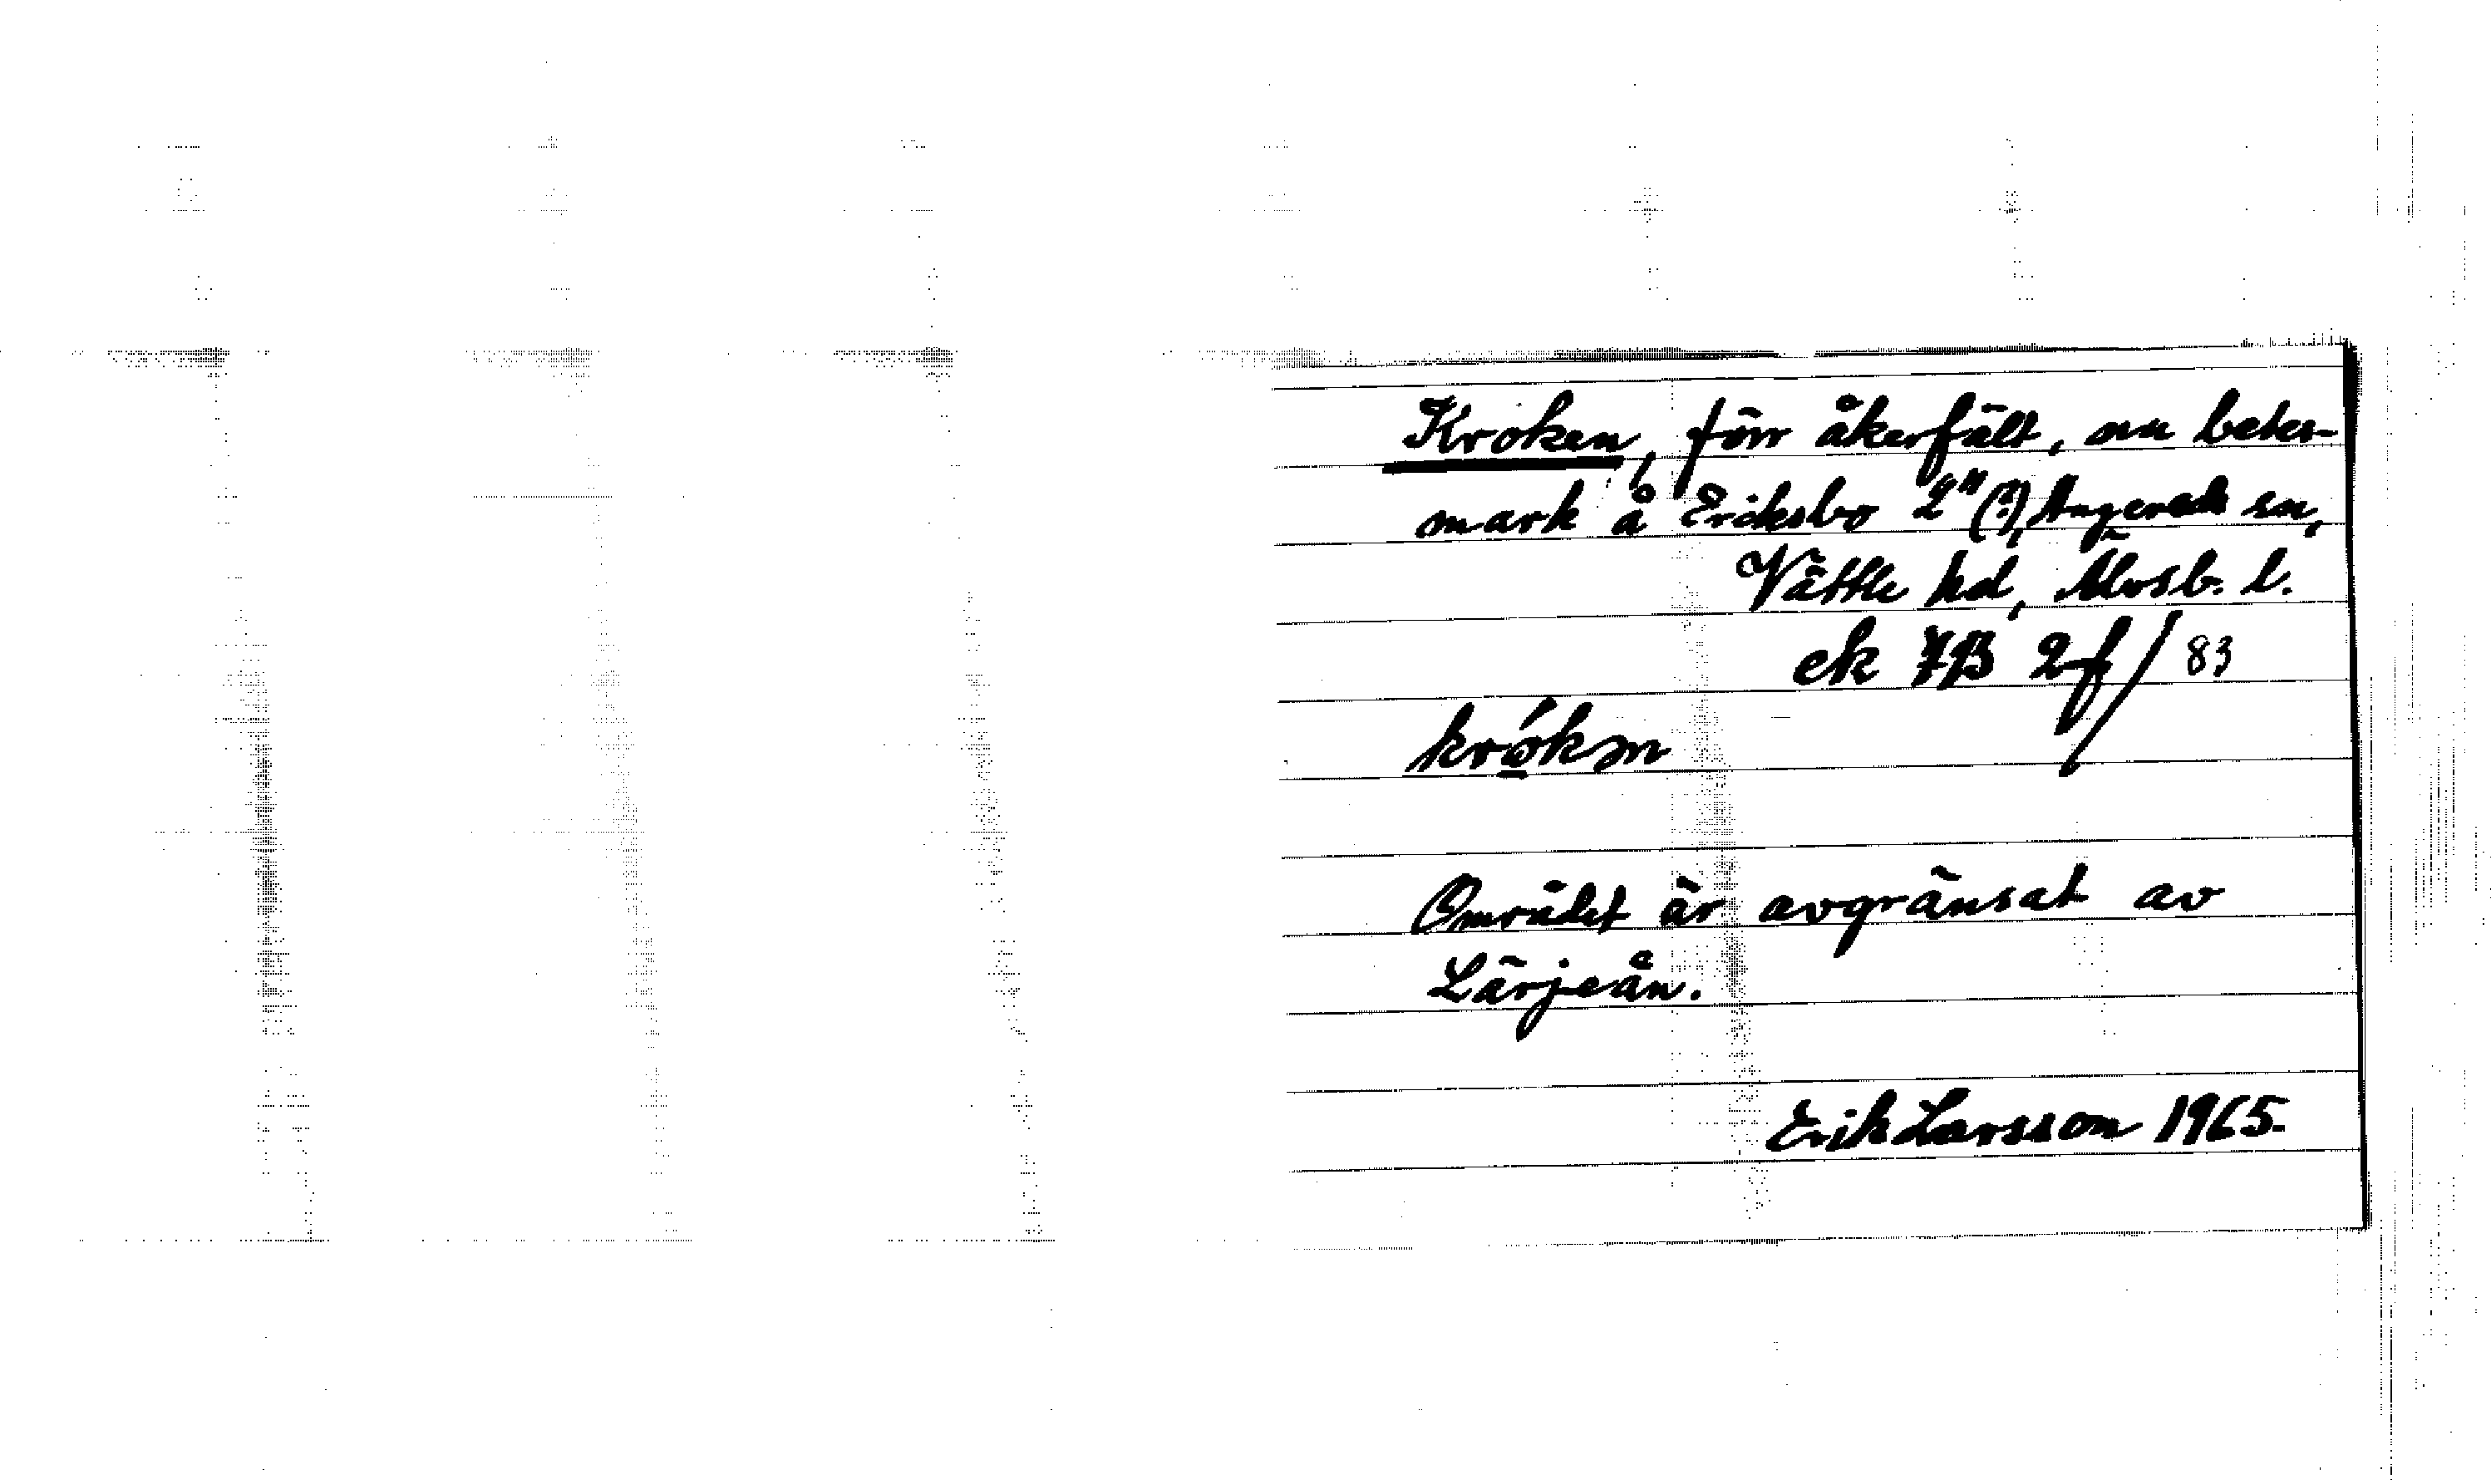 Kroken, förr åkerfält, nu betes-
mark å Eriksbo 2"(?), Angereds sn,
Vättle hd, Älvsb. l.
ek 7B 2f/83
krókm
Området är avgränsat av
Lärjeån.
Erik Larsson 1965.